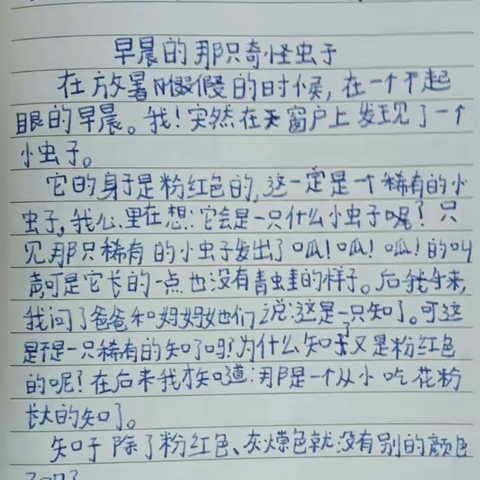 早晨的那只奇怪虫子
在放暑假的时候,在一个不起
眼的早晨。我!突然在天窗户上发现了一个
小虫子。
它的身子是粉红色的,这一定是一个稀有的小
虫子,我心里在想:它会是一只什么小虫子呢?只
见那只稀有的小虫子发出了呱!呱!呱!的叫
声可是它长的一点也没有青蛙的样子。后我年来,
我问了爸爸和妈妈她们说:这是一只知了。可这
是不是一只稀有的知了吗?为什么知了又是粉红色
的呢?在后来我才知道:那是一个从小吃花粉
长大的知了。
知了除了粉红色、灰溁色就没有别的颜色
了吗?